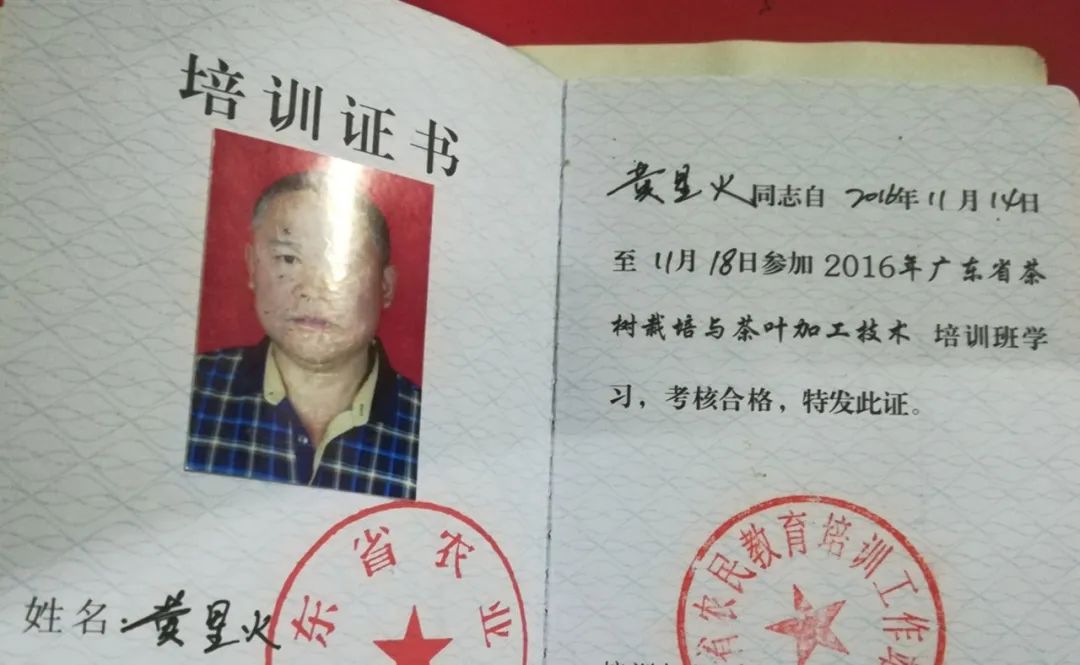 培训证书
姓名：黄星火
东省农业
黄星火同志自 2016年11月14日
至 11月18日参加 2016年广东省茶
树栽培与茶叶加工技术 培训班学
习，考核合格，特发此证。
省农民教育培训工作